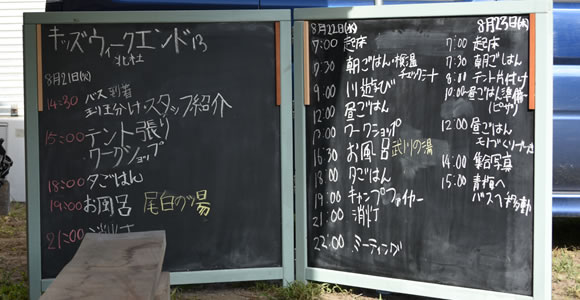 キッズウィークエンド13
北杜
8月21日(火)
14:30 バス到着
班分け・スタッフ紹介
15:00 テント張り
ワークショップ
18:00 夕ごはん
19:00 お風呂 尾白の湯
21:00 消灯
8月22日(水)
7:00 起床
7:30 朝ごはん・検温
チェックシート
9:00 川遊び
12:00 昼ごはん
13:00 ワークショップ
16:30 お風呂 武川の湯
18:00 夕ごはん
19:00 キャンプファイヤー
21:00 消灯
22:00 ミーティング
8月23日(木)
7:00 起床
7:30 朝ごはん
8:00 テント片付け
10:00 昼ごはん準備
(ピザ)
12:00 昼ごはん
14:00 集合写真
15:00 青梅へ
バスで移動